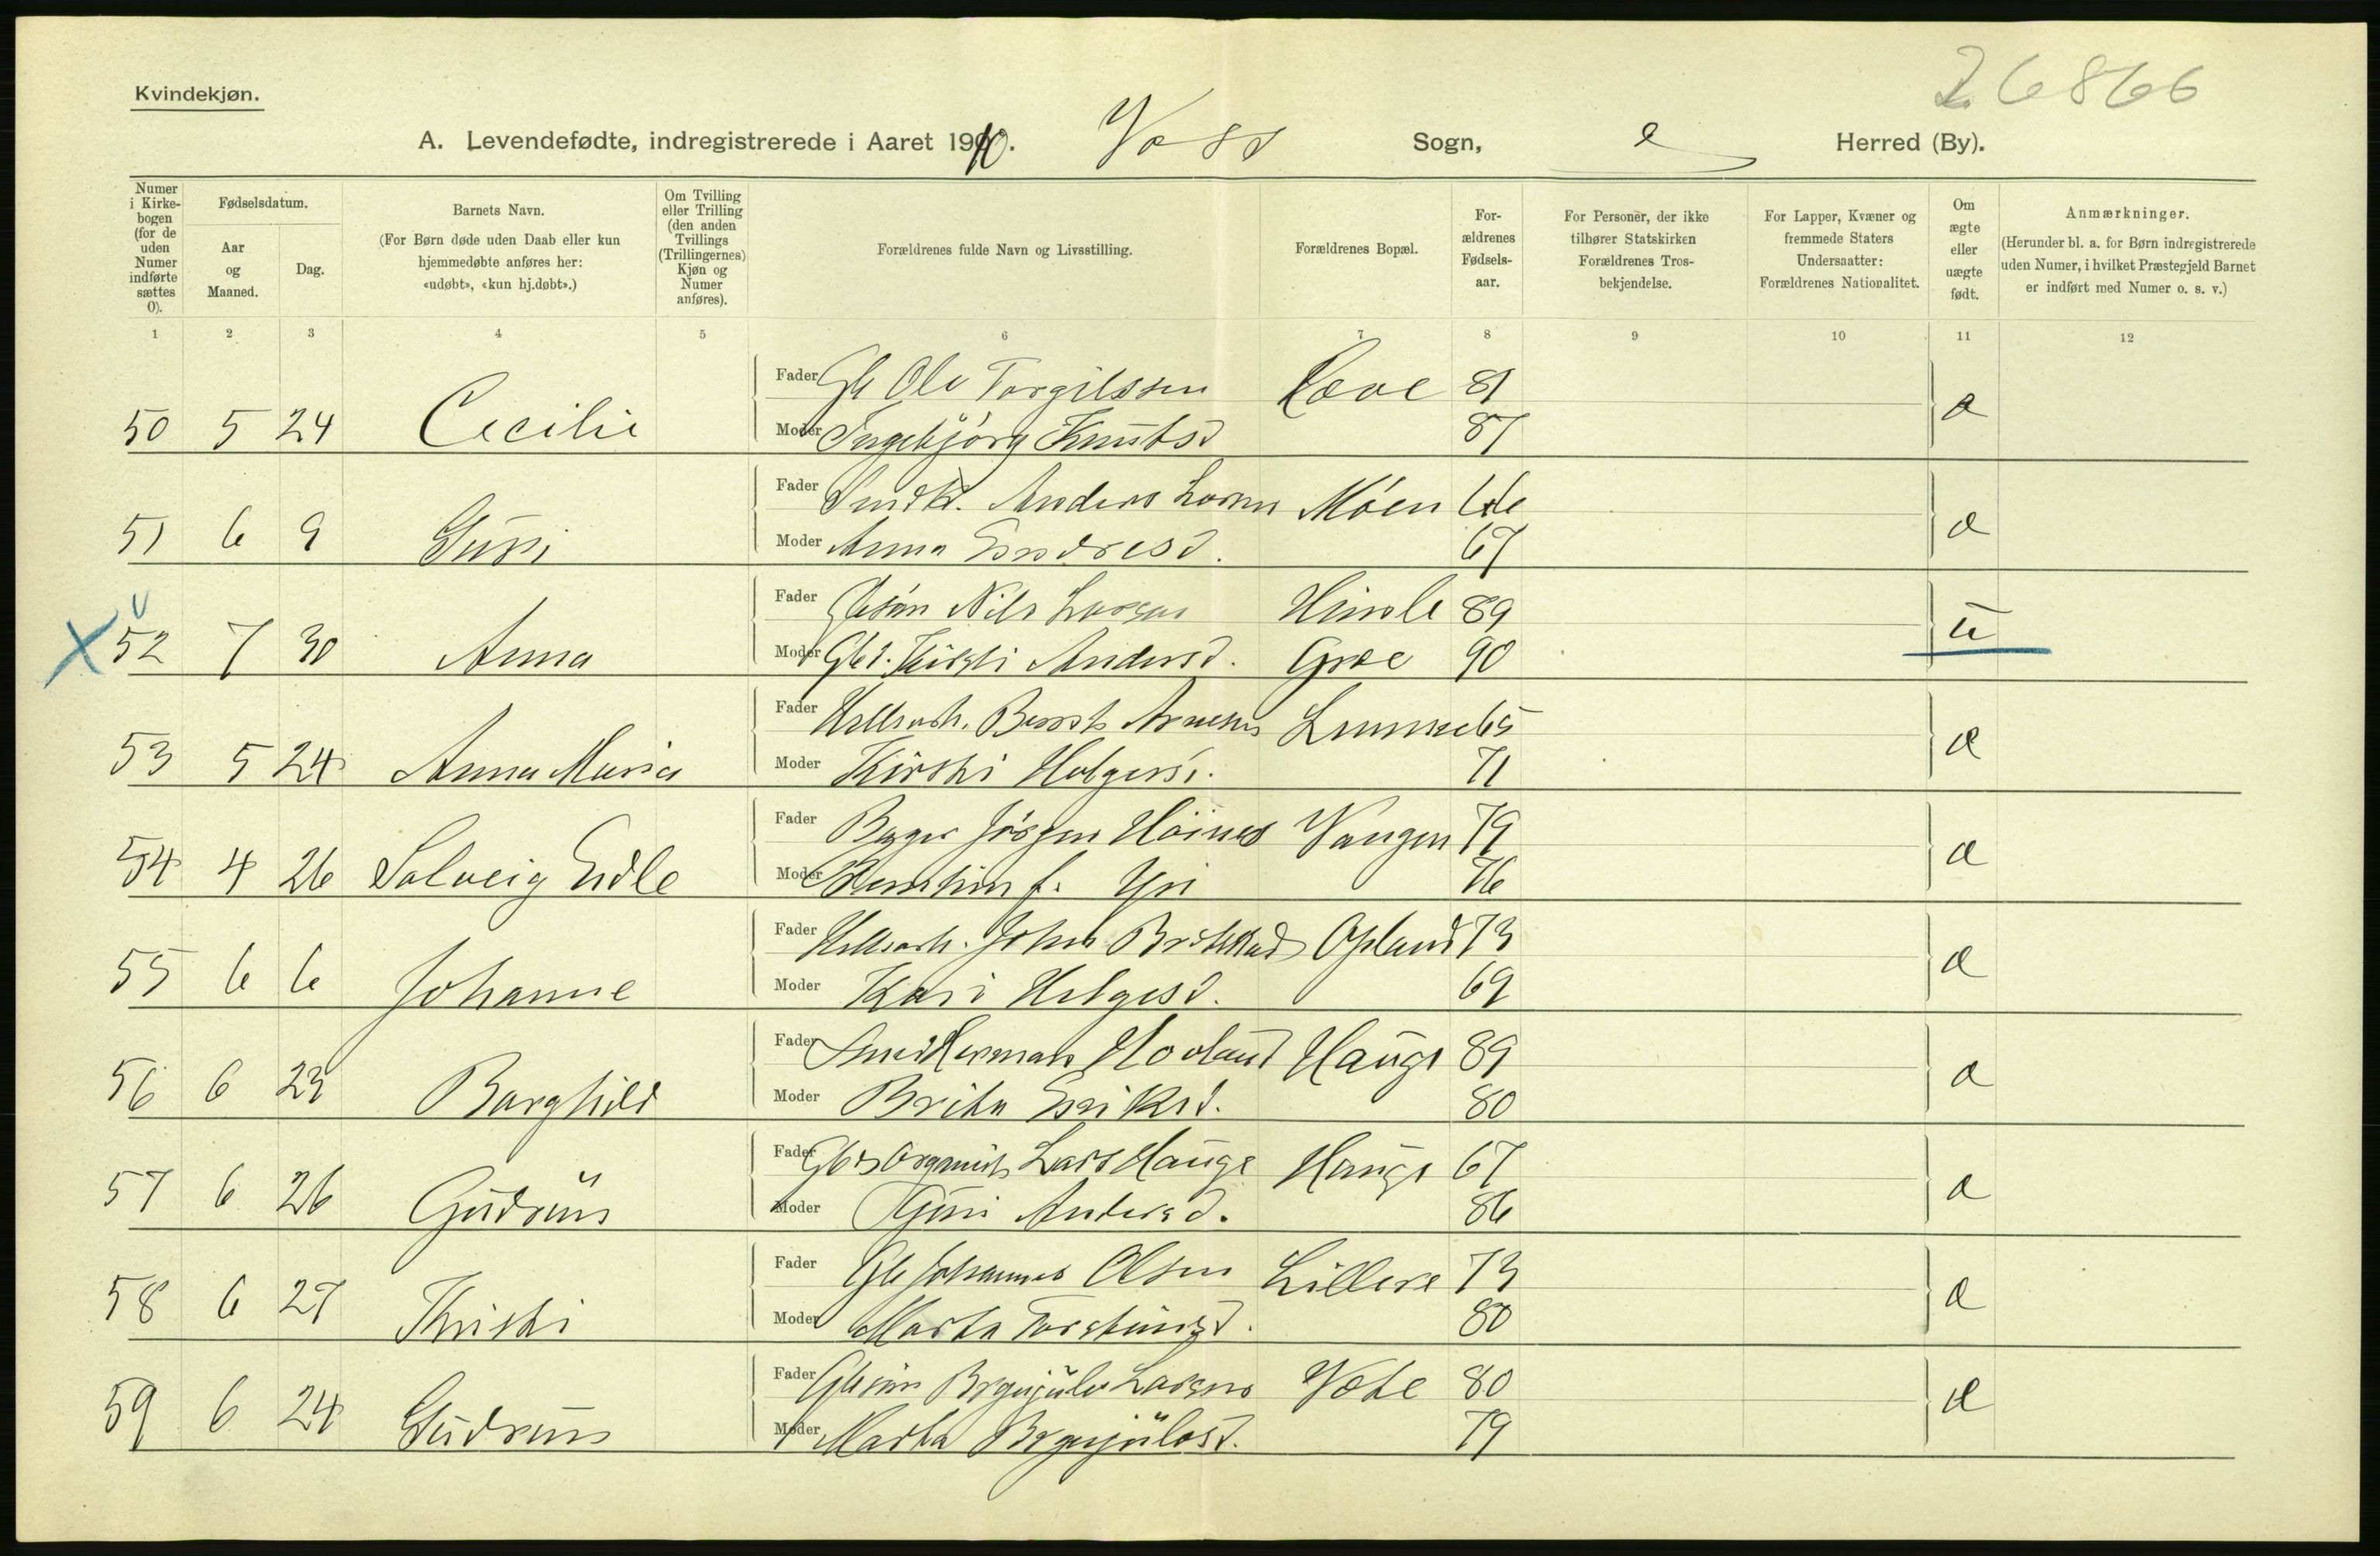 Kvindekjøn.
26866
A. Levendefødte, indregistrerede i Aaret 1910. Voss Sogn, Herred (By).
Numer i Kirke-bogen (for de uden Numer indførte sættes 0).
Fødselsdatum.
Aar og Maaned.
Dag.
Barnets Navn.
(For Børn døde uden Daab eller kun hjemmedøbte anføres her: «udøbt», «kun hj.døbt».)
Om Tvilling eller Trilling (den anden Tvillings (Trillingernes) Kjøn og Numer anføres).
Forældrenes fulde Navn og Livsstilling.
Forældrenes Bopæl.
For-ældrenes Fødsels-aar.
For Personer, der ikke tilhører Statskirken Forældrenes Tros-bekjendelse.
For Lapper, Kvæner og fremmede Staters Undersaatter: Forældrenes Nationalitet.
Om ægte eller uægte født.
Anmærkninger.
(Herunder bl. a. for Børn indregistrerede uden Numer, i hvilket Præstegjeld Barnet er indført med Numer o. s. v.)
1 2 3 4 5 6 7 8 9 10 11 12
Fader Gb Ole Torgilssen 81
50 5 24 Cecilie Moder Ingebjörg Knutsd 87 æ
Fader Anders Larsen Möen 66
51 6 9 Guri Moder Anna Endresd. 67 æ
Fader Gbsön Nils Larsen Himle 89
52 7 30 Anna Moder Gbd. Kirsti Andersd. Gjræe 90 u
Fader Arnesen 65
53 5 24 Anna Maria Moder Kirsti Holgersd. 71 æ
Fader Jörgen Vangen 79
54 4 26 Solveig Edle Moder f. Yri 76 æ
Fader Opland 73
55 6 6 Johanne Moder Kari Helgesd. 69 æ
Fader Herman Hovland Hauge 89
56 6 23 Borghild Moder Brita Eriksd. 80 æ
Fader Organist Lars Hauge Hauge 67
57 6 26 Gudrun Moder Guri Andersd. 86 æ
Fader Gb Johannes Olsen 73
58 6 27 Kristi Moder Marta Torsteinsd. 80 æ
Fader Gbsön Brynjulv Larsen 80
59 6 24 Gudrun Moder Martha Brynjülvsd. 79 æ